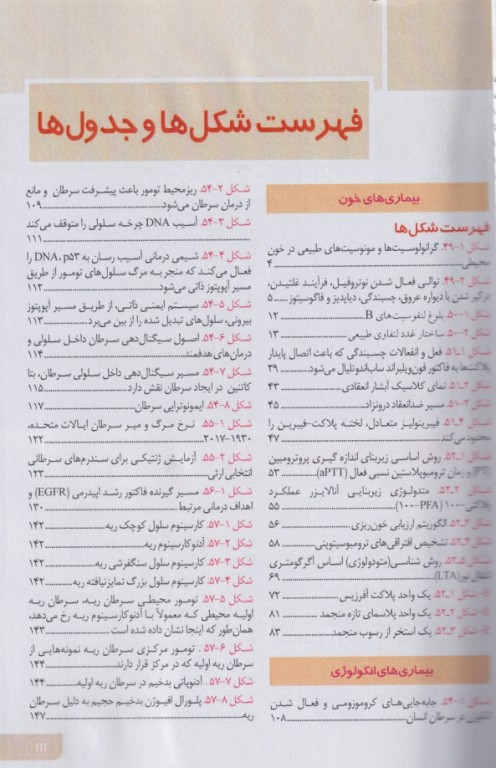 فهرست شکل‌ها و جدول‌ها
بیماری‌های خون
فهرست شکل‌ها
شکل ۱-۴۹. گرانولوسیت‌ها و مونوسیت‌های طبیعی در خون
محیطی ۴
شکل ۲-۴۹. توالی فعال شدن نوتروفیل، فرآیند غلتیدن،
درگیر شدن با دیواره عروق، چسبندگی، دیاپدیز و فاگوسیتوز ۵
شکل ۱-۵۰. بلوغ لنفوسیت‌های B ۱۲
شکل ۲-۵۰. ساختار غدد لنفاوی طبیعی ۱۳
شکل ۱-۵۱. فعل و انفعالات چسبندگی که باعث اتصال پایدار
پلاکت‌ها به فاکتور فون‌ویلبراند ساب‌اندوتلیال می‌شود. ۳۹
شکل ۲-۵۱. نمای کلاسیک آبشار انعقادی ۴۳
شکل ۳-۵۱. مسیر ضدانعقاد درونزاد ۴۵
شکل ۴-۵۱. فیبرینولیز متعادل، لخته پلاکت-فیبرین را
محدود می‌کند ۴۷
شکل ۱-۵۲. روش اساسی زیربنای اندازه گیری پروترومبین
(PT) و زمان ترومبوپلاستین نسبی فعال (aPTT) ۵۳
شکل ۲-۵۲. متدولوژی زیربنایی آنالایزر عملکرد
پلاکتی-۱۰۰ (PFA-۱۰۰) ۵۵
شکل ۳-۵۲. الگوریتم ارزیابی خون‌ریزی ۵۶
شکل ۴-۵۲. تشخیص افتراقی‌های ترومبوسیتوپنی ۵۸
شکل ۵-۵۲. روش شناسی(متودولوژی) اساس آگرگومتری
انتقال نور(LTA) ۶۹
شکل ۱-۵۲. یک واحد پلاکت آفرزیس ۷۲
شکل ۲-۵۲. یک واحد پلاسمای تازه منجمد ۸۱
شکل ۳-۵۲. یک استخر از رسوب منجمد ۸۳
بیماری‌های انکولوژی
شکل ۱-۵۴. جابه‌جایی‌های کروموزومی و فعال شدن
در سرطان انسان ۱۰۸
شکل ۲-۵۴. ریزمحیط تومور باعث پیشرفت سرطان و مانع
از درمان سرطان می‌شود ۱۰۹
شکل ۳-۵۴. آسیب DNA چرخه سلولی را متوقف می‌کند
۱۱۱
شکل ۴-۵۴. شیمی درمانی آسیب رسان به DNA، p۵۳ را
فعال می‌کند که منجر به مرگ سلول‌های تومور از طریق
مسیر آپوپتوز ذاتی می‌شود ۱۱۲
شکل ۵-۵۴. سیستم ایمنی ذاتی، از طریق مسیر آپوپتوز
بیرونی، سلول‌های تبدیل شده را از بین می‌برد ۱۱۳
شکل ۶-۵۴. اصول سیگنال‌دهی داخل سلولی و
درمان‌های هدفمند ۱۱۴
شکل ۷-۵۴. مسیر سیگنال‌دهی داخل سلولی سرطان، بتا
کاتنین در ایجاد سرطان نقش دارد ۱۱۵
شکل ۸-۵۴. ایمونوتراپی سرطان ۱۱۷
شکل ۱-۵۵. نرخ مرگ و میر سرطان ایالات متحده،
۱۹۳۰-۲۰۱۷ ۱۲۲
شکل ۲-۵۵. آزمایش ژنتیکی برای سندرم‌های سرطانی
انتخابی ارثی ۱۲۳
شکل ۱-۵۶. مسیر گیرنده فاکتور رشد اپیدرمی (EGFR) و
اهداف درمانی مرتبط ۱۳۰
شکل ۱-۵۷. کارسینوم سلول کوچک ریه ۱۴۲
شکل ۲-۵۷. آدنوکارسینوم ریه ۱۴۲
شکل ۳-۵۷. کارسینوم سلول سنگفرشی ریه ۱۴۲
شکل ۴-۵۷. کارسینوم سلول بزرگ تمایزنیافته ریه ۱۴۲
شکل ۵-۵۷. تومور محیطی سرطان ریه، سرطان ریه
اولیه محیطی که معمولاً با آدنوکارسینوم ریه رخ می‌دهد،
همان‌طور که اینجا نشان داده شده است ۱۴۳
شکل ۶-۵۷. تومور مرکزی سرطان ریه نمونه‌هایی از
سرطان ریه اولیه که در مرکز قرار دارند ۱۴۴
شکل ۷-۵۷. آدنوپاتی بدخیم در سرطان ریه اولیه ۱۴۴
شکل ۸-۵۷. پلورال افیوژن بدخیم حجیم به دلیل سرطان
ریه ۱۴۷
III